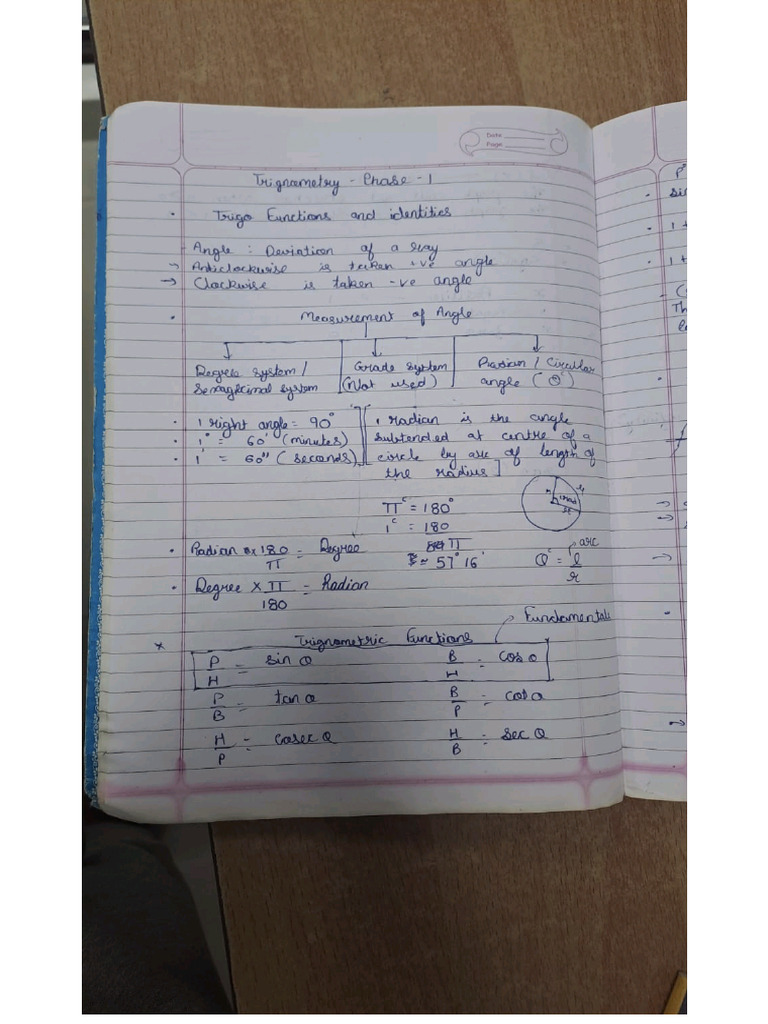 Date
Page
Trignometry - Phase - 1
• Trigo Functions and identities
Angle : Deviation of a ray
→ Anticlockwise is taken +ve angle
→ Clockwise is taken -ve angle
• Measurement of Angle
Degree system / Sexagecimal system
Grade system (Not used)
Radian / Circular angle (θᶜ)
• 1 right angle = 90°
• 1° = 60' (minutes)
• 1' = 60" (seconds)
[1 radian is the angle
substended at centre of a
circle by arc of length of
the radius]
r
r
1 rad
r
πᶜ = 180°
1ᶜ = 180/π
≈ 57° 16'
θᶜ = l/r
arc
• Radian × 180/π = Degree
• Degree × π/180 = Radian
Fundamentals
* Trignometric Functions
P/H = sin θ B/H = cos θ
P/B = tan θ B/P = cot θ
H/P = cosec θ H/B = sec θ
1 +
1 +
Th